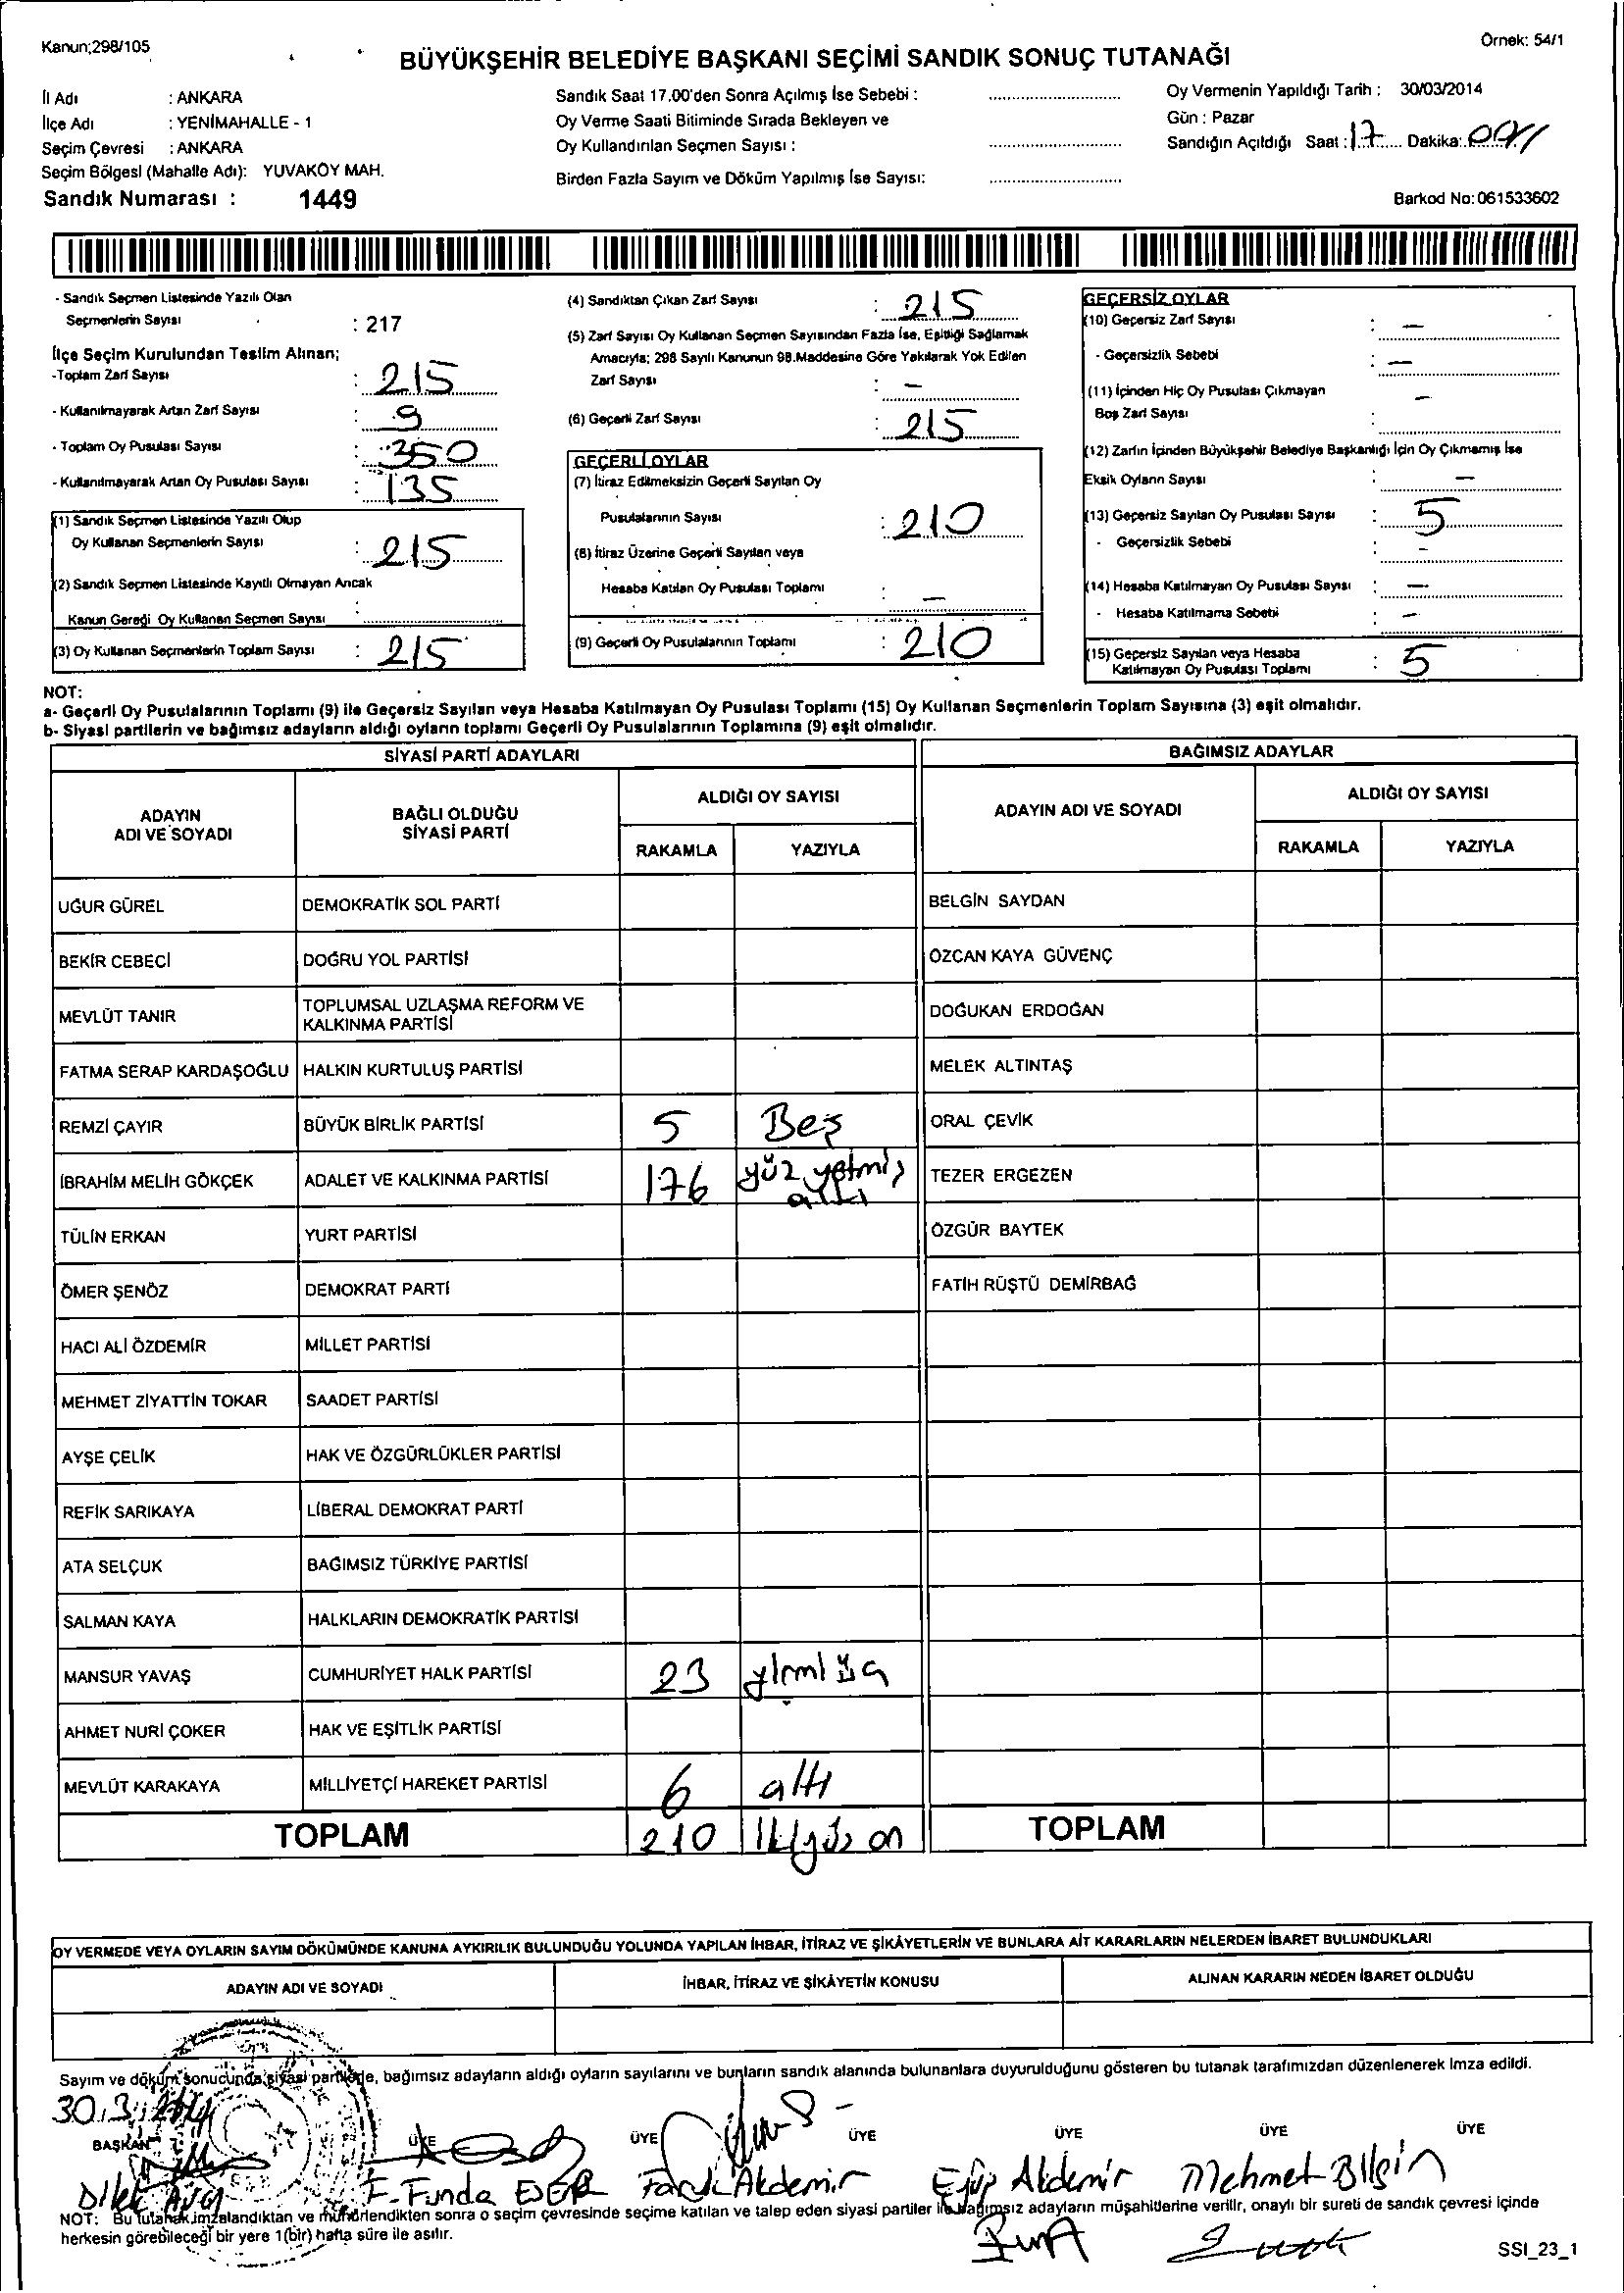 Kanun;298/105
Örnek: 54/1
BÜYÜKŞEHİR BELEDİYE BAŞKANI SEÇİMİ SANDIK SONUÇ TUTANAĞI
İl Adı : ANKARA
İlçe Adı : YENİMAHALLE - 1
Seçim Çevresi : ANKARA
Seçim Bölgesi (Mahalle Adı): YUVAKÖY MAH.
Sandık Numarası : 1449
Sandık Saat 17.00'den Sonra Açılmış İse Sebebi :
Oy Verme Saati Bitiminde Sırada Bekleyen ve
Oy Kullandırılan Seçmen Sayısı :
Birden Fazla Sayım ve Döküm Yapılmış İse Sayısı:
Oy Vermenin Yapıldığı Tarih : 30/03/2014
Gün : Pazar
Sandığın Açıldığı Saat : 17 Dakika:
Barkod No: 061533602
- Sandık Seçmen Listesinde Yazılı Olan
Seçmenlerin Sayısı : 217
İlçe Seçim Kurulundan Teslim Alınan;
-Toplam Zarf Sayısı : 215
- Kullanılmayarak Artan Zarf Sayısı : 9
- Toplam Oy Pusulası Sayısı : 350
- Kullanılmayarak Artan Oy Pusulası Sayısı : 135
(1) Sandık Seçmen Listesinde Yazılı Olup
Oy Kullanan Seçmenlerin Sayısı : 215
(2) Sandık Seçmen Listesinde Kayıtlı Olmayan Ancak
Kanun Gereği Oy Kullanan Seçmen Sayısı :
(3) Oy Kullanan Seçmenlerin Toplam Sayısı : 215
(4) Sandıktan Çıkan Zarf Sayısı : 215
(5) Zarf Sayısı Oy Kullanan Seçmen Sayısından Fazla İse, Eşitliği Sağlamak
Amacıyla; 298 Sayılı Kanunun 98.Maddesine Göre Yakılarak Yok Edilen
Zarf Sayısı : -
(6) Geçerli Zarf Sayısı : 215
GEÇERLİ OYLAR
(7) İtiraz Edilmeksizin Geçerli Sayılan Oy
Pusulalarının Sayısı : 210
(8) İtiraz Üzerine Geçerli Sayılan veya
Hesaba Katılan Oy Pusulası Toplamı : -
(9) Geçerli Oy Pusulalarının Toplamı : 210
GEÇERSİZ OYLAR
(10) Geçersiz Zarf Sayısı : -
- Geçersizlik Sebebi : -
(11) İçinden Hiç Oy Pusulası Çıkmayan
Boş Zarf Sayısı : -
(12) Zarfın İçinden Büyükşehir Belediye Başkanlığı İçin Oy Çıkmamış İse
Eksik Oyların Sayısı : -
(13) Geçersiz Sayılan Oy Pusulası Sayısı : 5
- Geçersizlik Sebebi : -
(14) Hesaba Katılmayan Oy Pusulası Sayısı : -
- Hesaba Katılmama Sebebi : -
(15) Geçersiz Sayılan veya Hesaba
Katılmayan Oy Pusulası Toplamı : 5
NOT:
a- Geçerli Oy Pusulalarının Toplamı (9) ile Geçersiz Sayılan veya Hesaba Katılmayan Oy Pusulası Toplamı (15) Oy Kullanan Seçmenlerin Toplam Sayısına (3) eşit olmalıdır.
b- Siyasi partilerin ve bağımsız adayların aldığı oyların toplamı Geçerli Oy Pusulalarının Toplamına (9) eşit olmalıdır.
SİYASİ PARTİ ADAYLARI
BAĞIMSIZ ADAYLAR
ADAYIN ADI VE SOYADI
BAĞLI OLDUĞU SİYASİ PARTİ
ALDIĞI OY SAYISI
RAKAMLA YAZIYLA
ADAYIN ADI VE SOYADI
ALDIĞI OY SAYISI
RAKAMLA YAZIYLA
UĞUR GÜREL DEMOKRATİK SOL PARTİ BELGİN SAYDAN
BEKİR CEBECİ DOĞRU YOL PARTİSİ ÖZCAN KAYA GÜVENÇ
MEVLÜT TANIR TOPLUMSAL UZLAŞMA REFORM VE KALKINMA PARTİSİ DOĞUKAN ERDOĞAN
FATMA SERAP KARDAŞOĞLU HALKIN KURTULUŞ PARTİSİ MELEK ALTINTAŞ
REMZİ ÇAYIR BÜYÜK BİRLİK PARTİSİ 5 Beş ORAL ÇEVİK
İBRAHİM MELİH GÖKÇEK ADALET VE KALKINMA PARTİSİ 176 yüz yetmiş altı TEZER ERGEZEN
TÜLİN ERKAN YURT PARTİSİ ÖZGÜR BAYTEK
ÖMER ŞENÖZ DEMOKRAT PARTİ FATİH RÜŞTÜ DEMİRBAĞ
HACI ALİ ÖZDEMİR MİLLET PARTİSİ
MEHMET ZİYATTİN TOKAR SAADET PARTİSİ
AYŞE ÇELİK HAK VE ÖZGÜRLÜKLER PARTİSİ
REFİK SARIKAYA LİBERAL DEMOKRAT PARTİ
ATA SELÇUK BAĞIMSIZ TÜRKİYE PARTİSİ
SALMAN KAYA HALKLARIN DEMOKRATİK PARTİSİ
MANSUR YAVAŞ CUMHURİYET HALK PARTİSİ 23 yirmi üç
AHMET NURİ ÇOKER HAK VE EŞİTLİK PARTİSİ
MEVLÜT KARAKAYA MİLLİYETÇİ HAREKET PARTİSİ 6 altı
TOPLAM 210 ikiyüz on TOPLAM
OY VERMEDE VEYA OYLARIN SAYIM DÖKÜMÜNDE KANUNA AYKIRILIK BULUNDUĞU YOLUNDA YAPILAN İHBAR, İTİRAZ VE ŞİKÂYETLERİN VE BUNLARA AİT KARARLARIN NELERDEN İBARET BULUNDUKLARI
ADAYIN ADI VE SOYADI İHBAR, İTİRAZ VE ŞİKÂYETİN KONUSU ALINAN KARARIN NEDEN İBARET OLDUĞU
Sayım ve döküm sonucunda siyasi partilerle, bağımsız adayların aldığı oyların sayılarını ve bunların sandık alanında bulunanlara duyurulduğunu gösteren bu tutanak tarafımızdan düzenlenerek imza edildi.
30.3.2014
BAŞKAN ÜYE ÜYE ÜYE ÜYE ÜYE ÜYE
Dilek F. Funda ESER Faruk Akdemir Eyüp Akdemir Mehmet Bilgin
NOT: Bu tutanak imzalandıktan ve mühürlendikten sonra o seçim çevresinde seçime katılan ve talep eden siyasi partiler ile bağımsız adayların müşahitlerine verilir, onaylı bir sureti de sandık çevresi içinde
herkesin görebileceği bir yere 1(bir) hafta süre ile asılır.
SSI_23_1